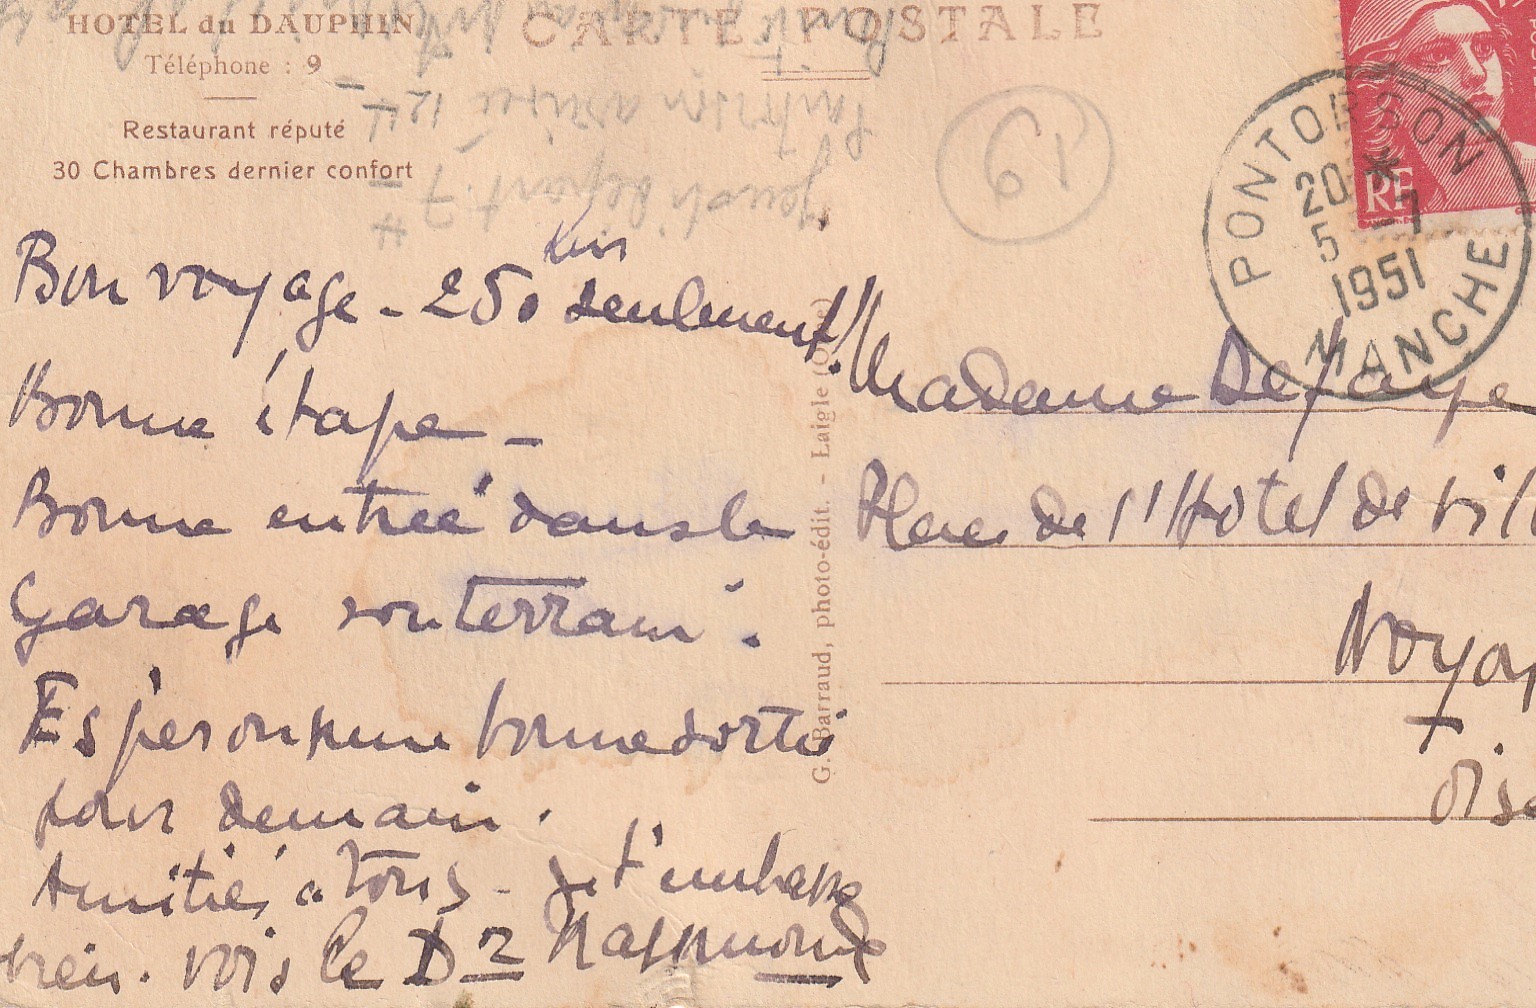 HOTEL du DAUPHIN
Téléphone : 9
Restaurant réputé
30 Chambres dernier confort
CARTE POSTALE
RF
PONTORSON
20
5 -7
1951
MANCHE
61
jeudi départ 7 H
arrivée 12H
Bon voyage - 250 kms seulement!
Bonne étape -
Bonne entrée dans le
Garage souterrain.
Espérons une bonne sortie
pour demain.
Amitiés à Tous - je t'embrasse
bien. vois le Dr
G. Barraud, photo-édit. - Laigle (Orne)
Madame Defaye
Place de l'Hôtel de Vil
Noyo
Oise